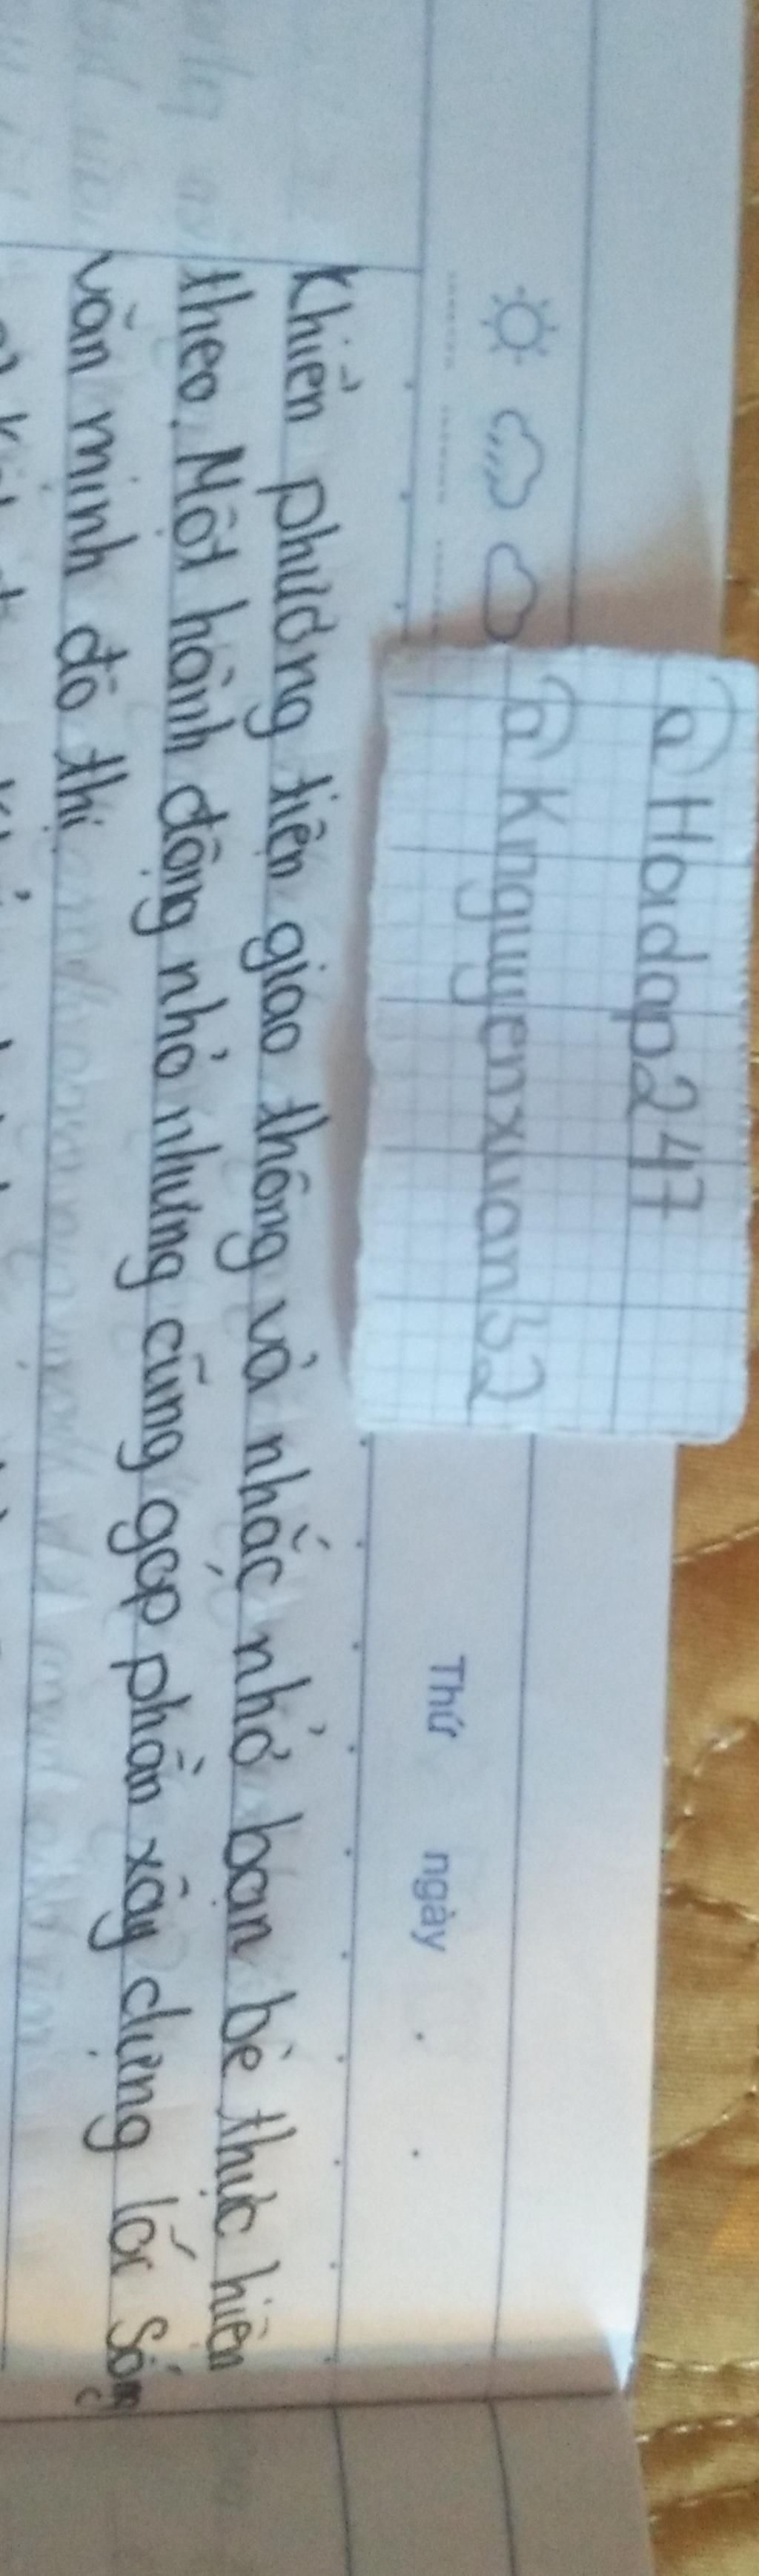 @Hadap247
@Knguyenxuan32
Thứ ngày . .
khiển phương tiện giao thông và nhắc nhở bạn bè thực hiện
theo. Một hành động nhỏ nhưng cũng góp phần xây dựng lối sống
văn minh đô thị